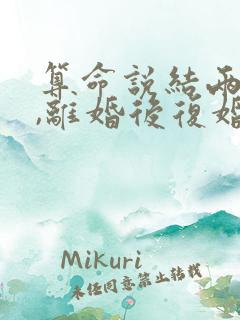 算命説結兩
,離婚後復婚
Mikuri
未任同意禁止转载